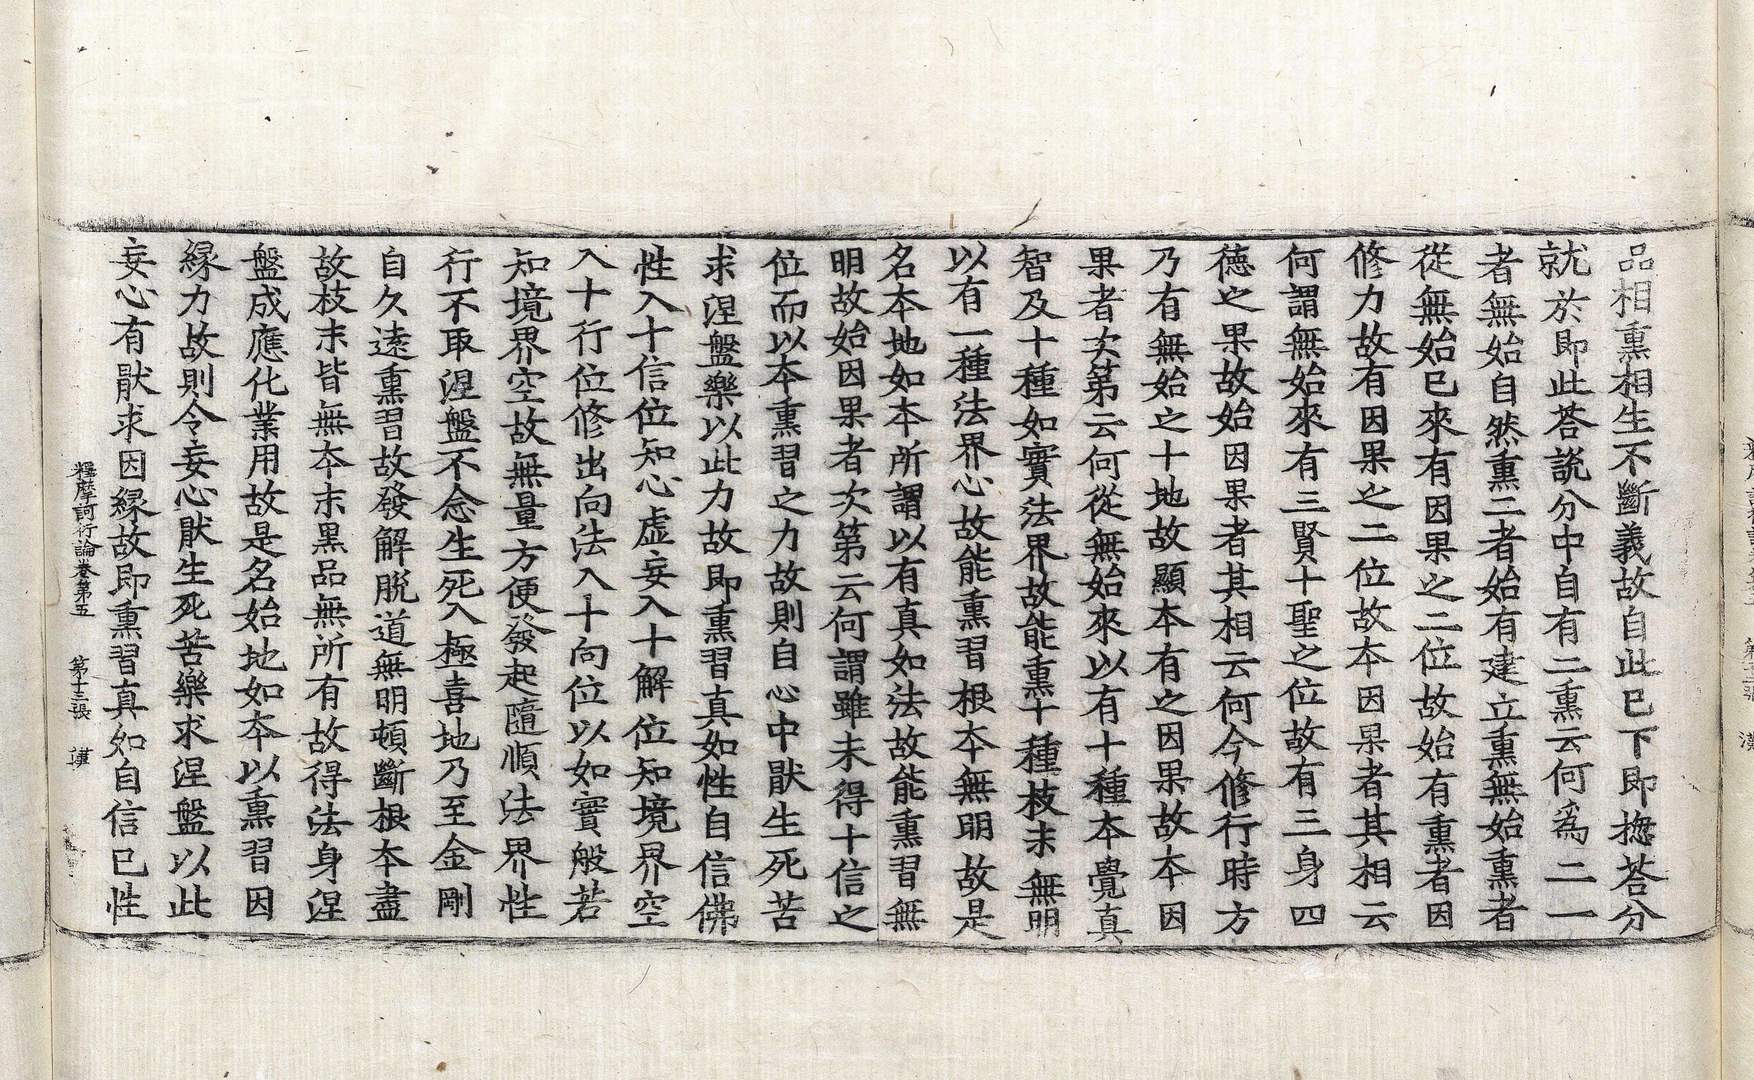 品相熏相生不斷義故自此已下即揔荅分
就於即此荅說分中自有二熏云何為二一
者無始自然熏二者始有建立熏無始熏者
從無始已來有因果之二位故始有熏者因
修力故有因果之二位故本因果者其相云
何謂無始來有三賢十聖之位故有三身四
德之果故始因果者其相云何今修行時方
乃有無始之十地故顯本有之因果故本因
果者次第云何從無始來以有十種本覺真
智及十種如實法界故能熏十種枝末無明
以有一種法界心故能熏習根本無明故是
名本地如本所謂以有真如法故能熏習無
明故始因果者次第云何謂雖未得十信之
位而以本熏習之力故則自心中猒生死苦
求涅盤樂以此力故即熏習真如性自信佛
性入十信位知心虛妄入十解位知境界空
入十行位修出向法入十向位以如實般若
知境界空故無量方便發起隨順法界性
行不取涅盤不念生死入極喜地乃至金剛
自久遠熏習故發解脫道無明頓斷根本盡
故枝末皆無本末黑品無所有故得法身涅
盤成應化業用故是名始地如本以熏習因
緣力故則令妄心猒生死苦樂求涅盤以此
妄心有猒求因緣故即熏習真如自信已性
釋摩訶衍論卷第五 第十三張